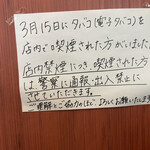 3月15日にタバコ(電子タバコ)を
店内で喫煙された方がいました。
店内禁煙につき、喫煙された方
は、警察に通報、出入禁止に
させていただきます。
ご理解とご協力のほど、よろしくお願いいたします